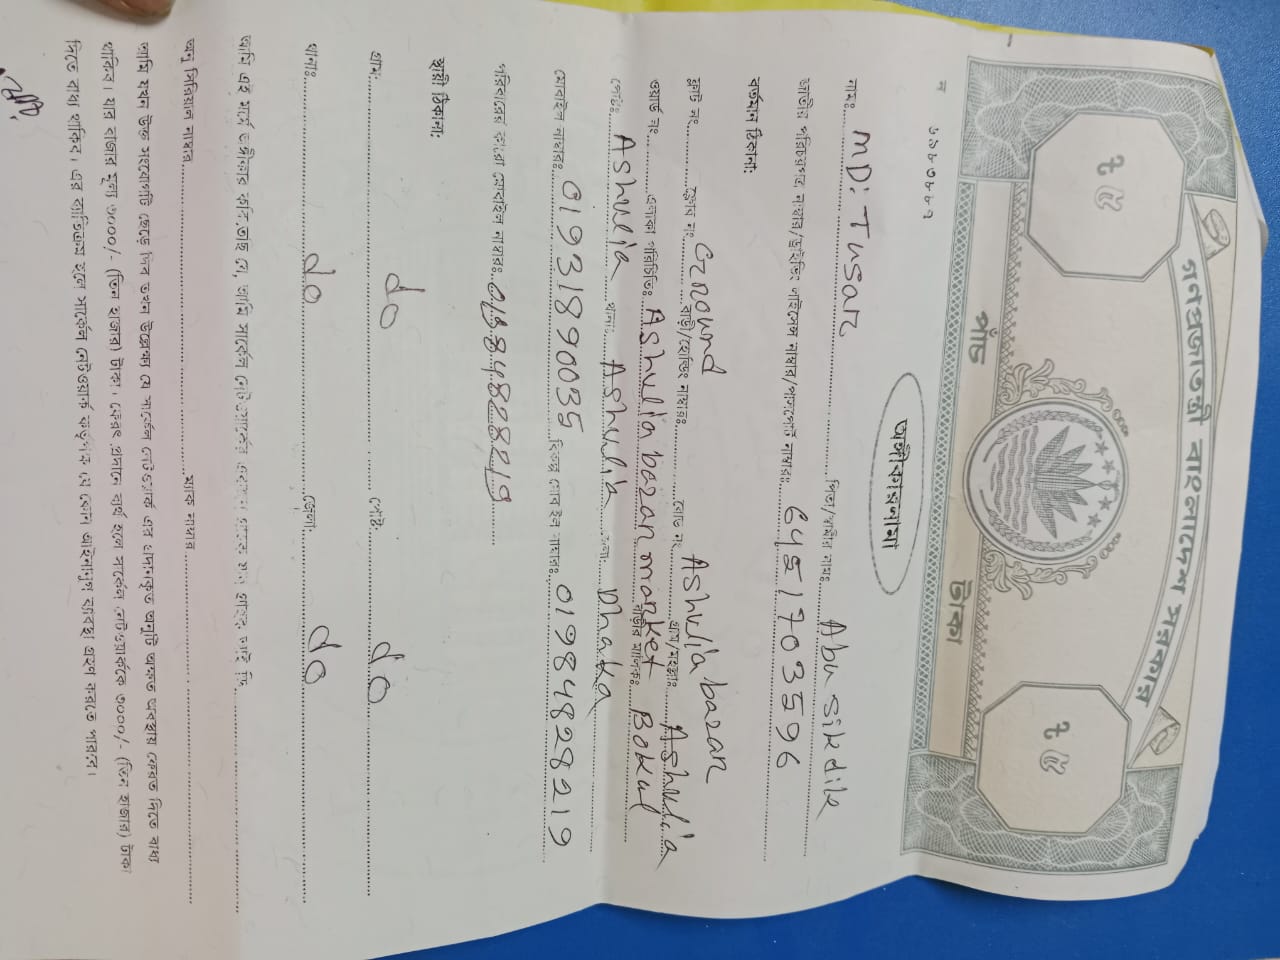 গণপ্রজাতন্ত্রী বাংলাদেশ সরকার
৫৲ ৫৲
পাঁচ টাকা
অঙ্গীকারনামা
নামঃ MD: Tusar পিতা/স্বামীর নামঃ Abu sikdik
জাতীয় পরিচয়পত্র নাম্বার/ড্রাইভিং লাইসেন্স নাম্বার/পাসপোর্ট নাম্বারঃ 6451703596
বর্তমান ঠিকানা:
ফ্ল্যাট নং ফ্লোর নং Ground বাড়ী/হোল্ডিং নাম্বারঃ রোড নং Ashulia bazar গ্রাম/মহল্লাঃ Ashulia
ওয়ার্ড নং এলাকা পরিচিতিঃ Ashulia bazar market বাড়ীর মালিকঃ Bokul
পোষ্টঃ Ashulia থানাঃ Ashulia জেলাঃ Dhaka
মোবাইল নাম্বারঃ 01931890035 বিকল্প মোবাইল নাম্বারঃ 01984828219
পরিবারের কারো মোবাইল নাম্বারঃ
স্থায়ী ঠিকানা:
গ্রাম: do পোষ্ট: do
থানাঃ do জেলা: do
আমি এই মর্মে অঙ্গীকার করিতেছি যে, আমি সার্কেল নেটওয়ার্কের একজন গ্রাহক
অনু সিরিয়াল নাম্বার ম্যাক নাম্বার
আমি যখন উক্ত সংযোগটি ছেড়ে দিব তখন উল্লেখিত সার্কেল নেটওয়ার্ক এর প্রদানকৃত অনুটি অক্ষত অবস্থায় ফেরত দিতে বাধ্য
থাকিব। যার বাজার মূল্য ৩০০০/- (তিন হাজার) টাকা। ফেরৎ প্রদানে ব্যর্থ হলে সার্কেল নেটওয়ার্ককে ৩০০০/- (তিন হাজার) টাকা
দিতে বাধ্য থাকিব। এর ব্যতিক্রম হলে সার্কেল নেটওয়ার্ক কর্তৃপক্ষ যে কোন আইনানুগ ব্যবস্থা গ্রহণ করতে পারবে।